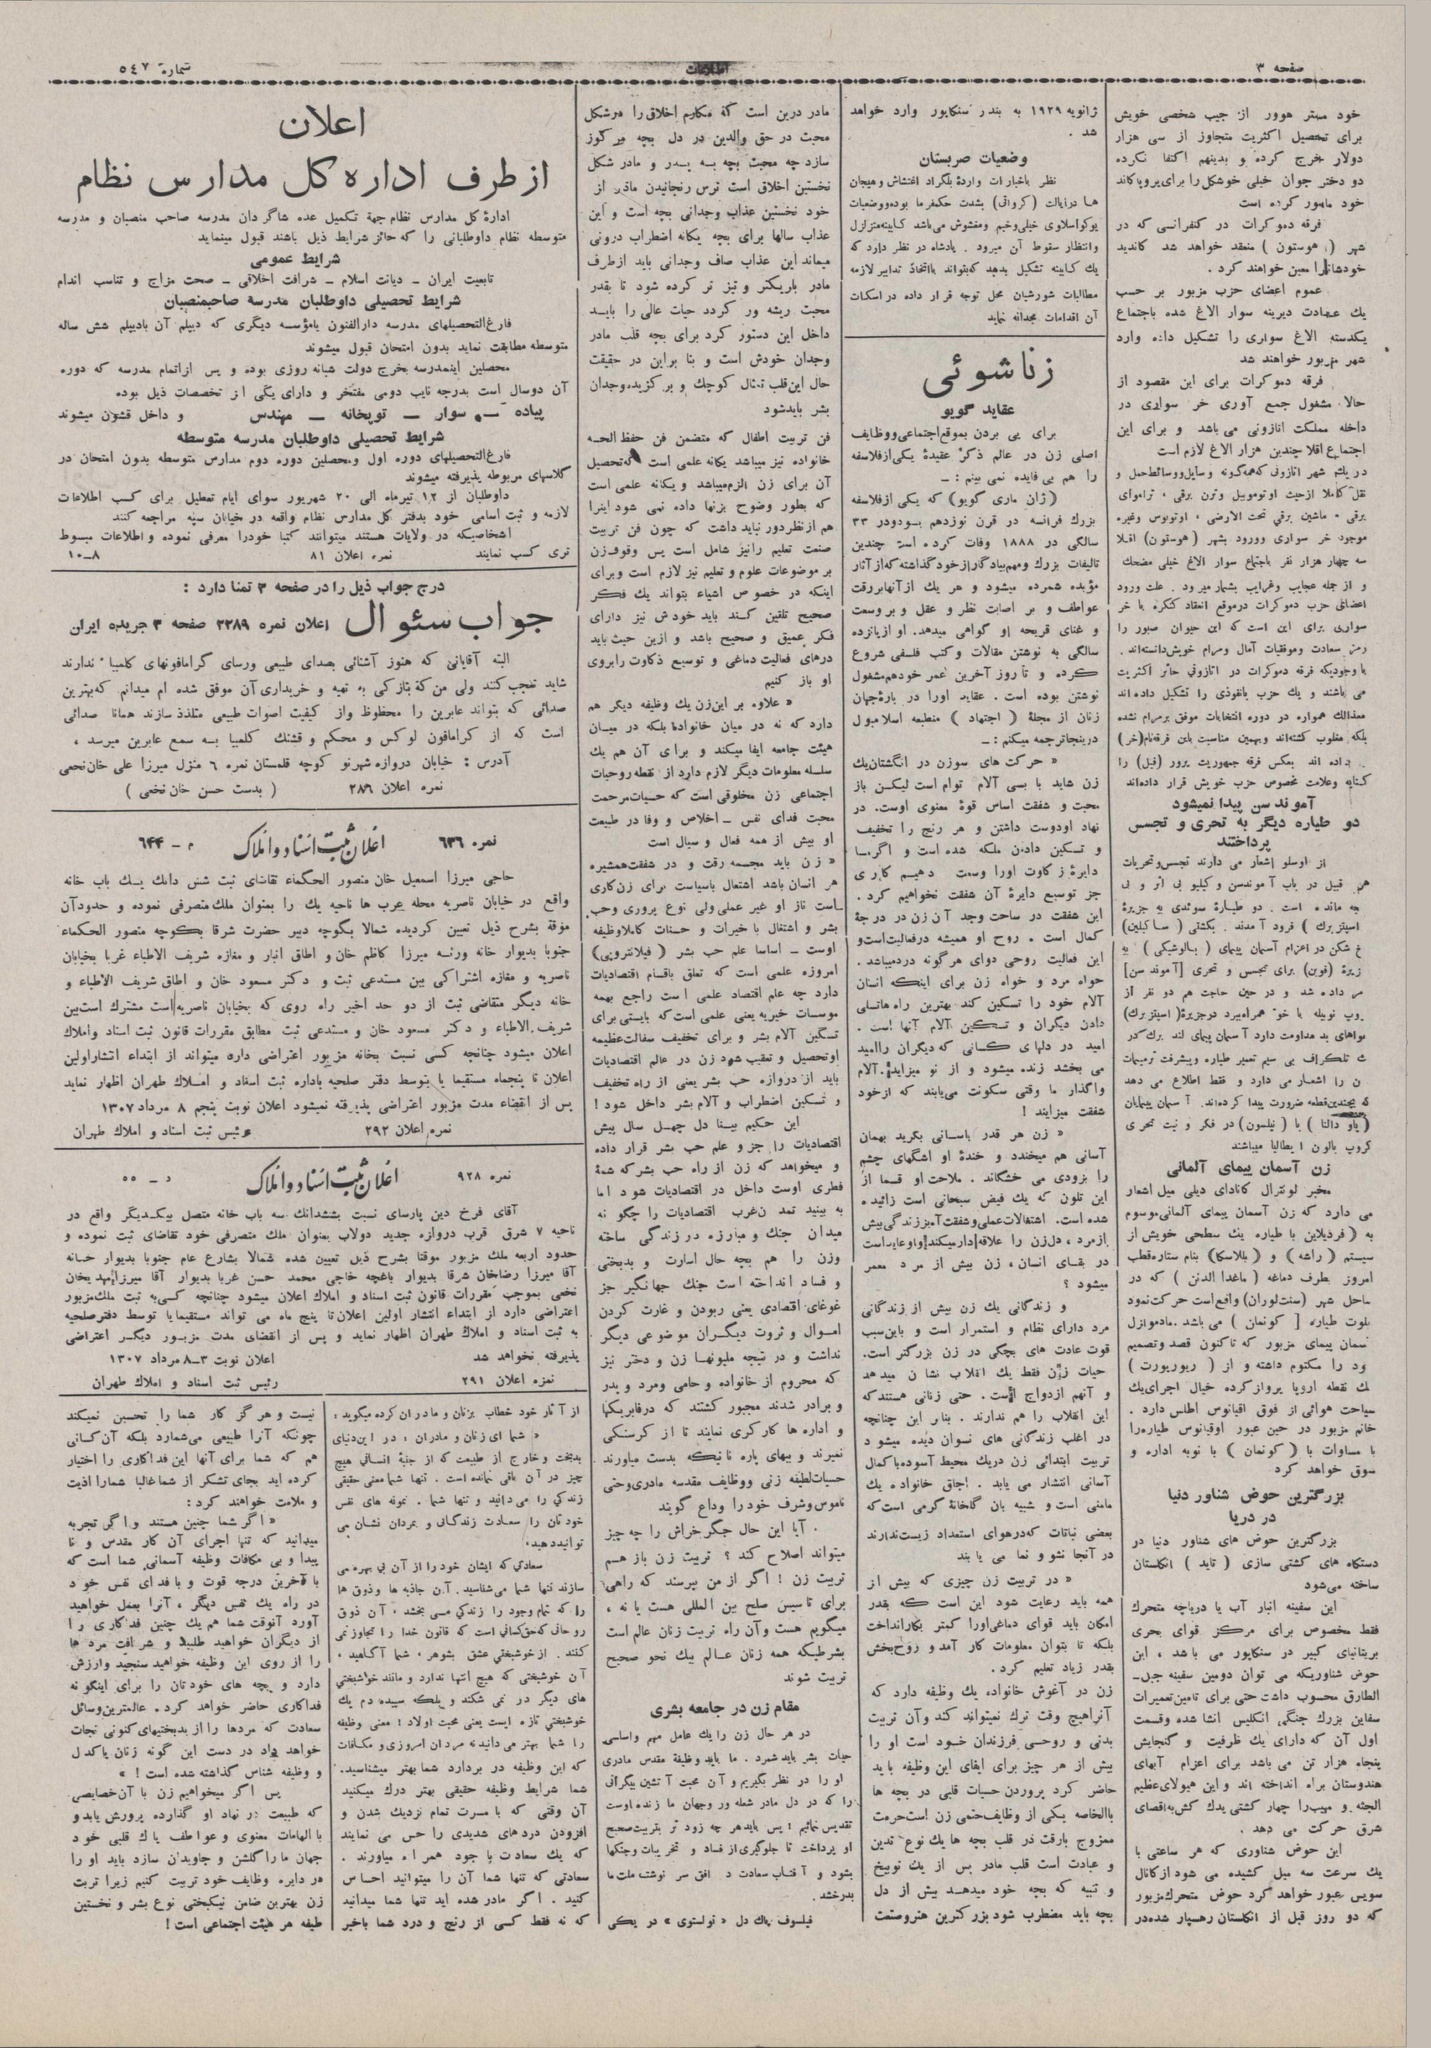 صفحه ۳
اطلاعات
شماره ۵٤۷
خود مستر هوور از جیب شخصی خویش
برای تحصیل اکثریت متجاوز از سی هزار
دولار خرج کرده و بدینهم اکتفا نکرده
دو دختر جوان خیلی خوشگل را برای پروپاکاند
خود مامور کرده است
فرقه دموکرات در کنفرانسی که در
شهر ( هوستون ) منعقد خواهد شد کاندید
خودشانرا معین خواهند کرد .
عموم اعضای حزب مزبور بر حسب
یك عادت دیرینه سوار الاغ شده باجتماع
یکدسته الاغ سواری را تشکیل داده وارد
شهر مزبور خواهند شد
فرقه دموکرات برای این مقصود از
حالا مشغول جمع آوری خر سواری در
داخله مملکت اتازونی می باشد و برای این
اجتماع اقلا چندین هزار الاغ لازم است
موجود خر سواری وورود بشهر (هوستون) اقلا
سه چهار هزار نفر باجتماع سوار الاغ خیلی مضحك
و از جمله عجایب وغرایب بشمار میرود . علت ورود
سواری برای این است که این حیوان صبور را
رمز سعادت وموفقیات آمال ومرام خویش دانسته اند .
باوجودیکه فرقه دموکرات در اتازونی حائز اکثریت
می باشند و یك حزب بانفوذی را تشکیل داده اند
معذالك همواره در دوره انتخابات موفق بمرام نشده
داده اند بعکس فرقه جمهوریت پرور (فیل) را
کنایه وعلامت مخصوص حزب خویش قرار داده اند
آموند سن پیدا نمیشود
دو طیاره دیگر به تحری و تجسس
پرداختند
از اوسلو اشعار می دارند تجسس وتحریات
زن آسمان پیمای آلمانی
می دارد که زن آسمان پیمای آلمانی موسوم
سیاحت هوائی از فوق اقیانوس اطلس دارد .
خانم مزبور در حین عبور اوقیانوس طیاره را
با مساوات با ( کونمان ) با نوبه اداره و
سوق خواهد کرد
بزرگترین حوض شناور دنیا
در دریا
بزرگترین حوض های شناور دنیا در
دستگاه های کشتی سازی ( تاید ) انگلستان
ساخته می‌شود
این سفینه انبار آب یا دریاچه متحرك
فقط مخصوص برای مرکز قوای بحری
بریتانیای کبیر در سنگاپور می باشد ، این
حوض شناوریکه می توان دومین سفینه جبل‌ـ
الطارق محسوب داشت حتی برای تامین تعمیرات
سفاین بزرك جنگی انگلیس انشا شده وقسمت
اول آن که دارای یك ظرفیت و گنجایش
پنجاه هزار تن می باشد برای اعزام آبهای
هندوستان براه انداخته اند و این هیولای عظیم
الجثه و مهیب را چهار کشتی یدك کش به اقصای
شرق حرکت می دهد .
این حوض شناوری که هر ساعتی با
یك سرعت سه میل کشیده می شود از کانال
سویس عبور خواهد کرد حوض متحرك مزبور
که دو روز قبل از انگلستان رهسپار شده در
ژانویه ۱۹۲۹ به بندر سنگاپور وارد خواهد
شد .
وضعیات صربستان
نظر باخبارات واردهٔ بلگراد اغتشاش وهیجان
ها درایالت (کرواتی) بشدت حکمفرما بوده ووضعیات
یوگواسلاوی خیلی وخیم ومغشوش می باشد کابینه متزلزل
وانتظار سقوط آن میرود . پادشاه در نظر دارد که
یك کابینه تشکیل بدهد که بتواند باتخاذ تدابیر لازمه
مطالبات شورشیان محل توجه قرار داده در اسکات
آن اقدامات مجدانه نماید
زناشوئی
عقاید گویو
برای پی بردن بموقع اجتماعی ووظایف
اصلی زن در عالم ذکر عقیدهٔ یکی از فلاسفه
را هم بی فایده نمی بینم : ـ
(ژان ماری گویو) که یکی از فلاسفه
بزرك فرانسه در قرن نوزدهم بود و در ۳۳
سالگی در ۱۸۸۸ وفات کرده است چندین
تالیفات بزرك ومهم بیادگار از خود گذاشته که از آثار
مؤبده شمرده میشود و هر یك از آنها برقت
عواطف و بر اصابت نظر و عقل و بر وسعت
و غنای قریحه او گواهی میدهد. او از پانزده
سالگی به نوشتن مقالات و کتب فلسفی شروع
کرده و تا روز آخرین عمر خود هم مشغول
نوشتن بوده است . عقاید اورا در بارهٔ جهان
زنان از مجلهٔ ( اجتهاد ) منطبعه اسلامبول
دراینجا ترجمه میکنم : ـ
« حرکت های سوزن در انگشتان یك
زن شاید با بسی آلام توام است لیکن باز
محبت و شفقت اساس قوهٔ معنوی اوست . در
نهاد اودوست داشتن و هر رنج را تخفیف
و تسکین دادن ملکه شده است و اگر ما
دایرهٔ زکاوت اورا وسعت دهیم کاری
جز توسیع دایرهٔ آن شفقت نخواهیم کرد .
این شفقت در ساحت وجد آن زن در درجهٔ
کمال است . روح او همیشه در فعالیت است و
این فعالیت روحی دوای هر گونه درد میباشد .
خواه مرد و خواه زن برای اینکه انسان
آلام خود را تسکین کند بهترین راه ها تسلی
دادن دیگران و تسکین آلام آنها است .
امید در دلهای کسانی که دیگران را امید
می بخشد زنده میشود و از نو میزاید. آلام
واگذار ما وقتی سکونت می‌یابند که از خود
شفقت میزایند !
« زن هر قدر باسانی بگرید بهمان
آسانی هم میخندد و خندهٔ او اشگهای چشم
را بزودی می خشگاند . ملاحت او قسما از
این تلون که یك فیض سبحانی است زائیده
در بقای انسان ، زن بیش از مرد معمر
میشود ؟
و زندگانی یك زن بیش از زندگانی
مرد دارای نظام و استمرار است و باین سبب
قوت عادت های بچگی در زن بزرگتر است.
حیات زن فقط یك انقلاب نشان میدهد
و آنهم ازدواج است . حتی زنانی هستند که
این انقلاب را هم ندارند . بنابر این چنانچه
در اغلب زندگانی های نسوان دیده میشود
تربیت ابتدائی زن در یك محیط آسوده با کمال
آسانی انتشار می یابد . اجاق خانواده یك
مامنی است و شبیه بان گلخانهٔ گرمی است که
بعضی نباتات که در هوای استمداد زیست ندارند
در آنجا نشو و نما می یا بند
« در تربیت زن چیزی که بیش از
همه باید رعایت شود این است که بقدر
امکان باید قوای دماغی او را کمتر بکار انداخت
بلکه تا بتوان معلومات کار آمد و روح بخش
بقدر زیاد تعلیم کرد .
زن در آغوش خانواده، یك وظیفه دارد که
آنرا هیچ وقت ترك نمیتواند کند وآن تربیت
بدنی و روحی فرزندان خود است او را
بیش از هر چیز برای ایفای این وظیفه باید
حاضر کرد پروردن حسیات قلبی در بچه ها
باالخاصه یکی از وظایف حتمی زن است حرمت
ممزوج بارقت در قلب بچه ها یك نوع تدین
و عبادت است قلب مادر پس از یك توبیخ
و تنبیه که بچه خود میدهد بیش از دل
بچه باید مضطرب شود بزرگترین هنر وصنعت
مادر درین است که مکارم اخلاق را هر شکل
محبت در حق والدین در دل بچه مرکوز
سازد چه محبت بچه به پدر و مادر شکل
نخستین اخلاق است ترس رنجانیدن مادر از
خود نخستین عذاب وجدانی بچه است و این
عذاب سالها برای بچه یگانه اضطراب درونی
میماند این عذاب صاف وجدانی باید از طرف
مادر باریکتر و تیز تر کرده شود تا بقدر
محبت ریشه ور گردد حیات عالی را باید
داخل این دستور کرد برای بچه قلب مادر
وجدان خودش است و بنا براین در حقیقت
حال این قلب تمثال کوچك و برگزیده وجدان
بشر باید شود
فن تربیت اطفال که متضمن فن حفظ الصحه
خانواده نیز میباشد یگانه علمی است که تحصیل
آن برای زن الزم میباشد و یگانه علمی است
که بطور وضوح بزنها داده نمی شود اینرا
هم از نظر دور نباید داشت که چون فن تربیت
صنعت تعلیم را نیز شامل است پس وقوف زن
بر موضوعات علوم و تعلیم نیز لازم است و برای
اینکه در خصوص اشیاء بتواند یك فکر
صحیح تلقین کند باید خودش نیز دارای
فکر عمیق و صحیح باشد و ازین حیث باید
درهای فعالیت دماغی و توسیع ذکاوت را بروی
او باز کنیم
« علاوه بر این زن یك وظیفه دیگر هم
دارد که نه در میان خانواده بلکه در میان
هیئت جامعه ایفا میکند و برای آن هم یك
سلسله معلومات دیگر لازم دارد از نقطه روحیات
اجتماعی زن مخلوقی است که حسیات مرحمت
محبت فدای نفس ـ اخلاص و وفا در طبیعت
او بیش از همه فعال و سیال است
« زن باید مجسمه رقت و در شفقت همشیره
هر انسان باشد اشتغال باسیاست برای زن کاری
است ناز او غیر عملی ولی نوع پروری و حب
بشر و اشتغال با خیرات و حسنات کاملا وظیفه
اوست ـ اساسا علم حب بشر (فیلانتروپی)
امروزه علمی است که تعلق باقسام اقتصادیات
دارد چه علم اقتصاد علمی است راجع بهمه
موسسات خیریه یعنی علمی است که بایستی برای
تسکین آلام بشر و برای تخفیف سفالت عظیمه
او تحصیل و تعقیب شود زن در عالم اقتصادیات
باید از دروازه حب بشر یعنی از راه تخفیف
و تسکین اضطراب و آلام بشر داخل شود !
این حکیم بینا دل چهل سال پیش
اقتصادیات را جزو علم حب بشر قرار داده
و میخواهد که زن از راه حب بشر که شمهٔ
فطری اوست داخل در اقتصادیات شود اما
به بینید تمدن غرب اقتصادیات را چگونه
میدان جنك و مبارزه در زندگی ساخته
وزن را هم بچه حال اسارت و بدبختی
و فساد انداخته است جنك جهانگیر جز
غوغای اقتصادی یعنی ربودن و غارت کردن
اموال و ثروت دیگران موضوعی دیگر
نداشت و در نتیجه ملیونها زن و دختر نیز
که محروم از خانواده و حامی ومرد و پدر
و برادر شدند مجبور گشتند که در فابریکها
و اداره ها کارگری نمایند تا از گرسنگی
نمیرند و ببهای پاره نانیکه بدست میاورند
حسیات لطیفه زنی ووظایف مقدسه مادری وحتی
ناموس وشرف خود را وداع گویند
آیا این حال جگر خراش را چه چیز
میتواند اصلاح کند ؟ تربیت زن باز هم
تربیت زن ! اگر از من بپرسند که راهی
برای تاسیس صلح بین المللی هست یا نه ،
میگویم هست وآن راه تربیت زنان عالم است
بشرطیکه همه زنان عالم بیك نحو صحیح
تربیت شوند
مقام زن در جامعه بشری
در هر حال زن را یك عامل مهم و اساسی
حیات بشر باید شمرد . ما باید وظیفه مقدس مادری
او را در نظر بگیریم و آن محبت آتشین بیگرانی
را که در دل مادر شعله ور وجهان ما زنده اوست
تقدیس نمائیم ؛ پس باید هر چه زود تر بتربیت صحیح
او پرداخت تا جلوگیری از فساد و تخریبات وجنگها
بشود و آفتاب سعادت در افق سر نوشت ملت ما
بدرخشد .
فیلسوف پاك دل « تولستوی » در یکی
اعلان
از طرف اداره کل مدارس نظام
ادارهٔ کل مدارس نظام جهة تکمیل عده شاگردان مدرسه صاحب منصبان و مدرسه
متوسطه نظام داوطلبانی را که حائز شرایط ذیل باشند قبول مینماید
شرایط عمومی
تابعیت ایران ـ دیانت اسلام ـ شرافت اخلاقی ـ صحت مزاج و تناسب اندام
شرایط تحصیلی داوطلبان مدرسه صاحبمنصبان
فارغ‌التحصیلهای مدرسه دارالفنون یا مؤسسه دیگری که دیپلم آن بادیپلم شش ساله
متوسطه مطابقت نماید بدون امتحان قبول میشوند
محصلین اینمدرسه بخرج دولت شبانه روزی بوده و پس از اتمام مدرسه که دوره
آن دوسال است بدرجه نایب دومی مفتخر و دارای یکی از تخصصات ذیل بوده
پیاده ـ سوار ـ توپخانه ـ مهندس و داخل قشون میشوند
شرایط تحصیلی داوطلبان مدرسه متوسطه
فارغ‌التحصیلهای دوره اول ومحصلین دوره دوم مدارس متوسطه بدون امتحان در
کلاسهای مربوطه پذیرفته میشوند
داوطلبان از ۱۲ تیرماه الی ۲۰ شهریور سوای ایام تعطیل برای کسب اطلاعات
لازمه و ثبت اسامی خود بدفتر کل مدارس نظام واقعه در خیابان سپه مراجعه کنند
اشخاصیکه در ولایات هستند میتوانند کتبا خودرا معرفی نموده و اطلاعات مبسوط
تری کسب نمایند نمره اعلان ۸۱ ۸ـ۱۰
درج جواب ذیل را در صفحه ۳ تمنا دارد :
جواب سئوال اعلان نمره ۲۲۸۹ صفحه ۳ جریده ایران
البته آقایانی که هنوز آشنائی بصدای طبیعی ورسای گرامافونهای کلمبیا ندارند
شاید تعجب کنند ولی من که بتازگی به تهیه و خریداری آن موفق شده ام میدانم که بهترین
صدائی که بتواند عابرین را محظوظ و از کیفیت اصوات طبیعی متلذذ سازند همانا صدائی
است که از گرامافون لوکس و محکم و قشنك کلمبیا به سمع عابرین میرسد ،
آدرس : خیابان دروازه شهرنو کوچه قلمستان نمره ۶ منزل میرزا علی خان نخعی
نمره اعلان ۲۸۶ ( بدست حسن خان نخعی )
نمره ۶۳۶ اعلان ثبت اسناد و املاك م ـ ۶۴۴
حاجی میرزا اسمعیل خان منصور الحکماء تقاضای ثبت شش دانك یك باب خانه
واقع در خیابان ناصریه محله عرب ها ناحیه یك را بعنوان ملك متصرفی نموده و حدود آن
موقة بشرح ذیل تعیین گردیده شمالا بکوچه دبیر حضرت شرقا بکوچه منصور الحکماء
جنوبا بدیوار خانه ورثه میرزا کاظم خان و اطاق انبار و مغازه شریف الاطباء غربا بخیابان
ناصریه و مغازه اشتراکی بین مستدعی ثبت و دکتر مسعود خان و اطاق شریف الاطباء و
خانه دیگر متقاضی ثبت از دو حد اخیر راه روی که بخیابان ناصریه است مشترك است بین
شریف الاطباء و دکتر مسعود خان و مستدعی ثبت مطابق مقررات قانون ثبت اسناد واملاك
اعلان میشود چنانچه کسی نسبت بخانه مزبور اعتراضی دارد میتواند از ابتداء انتشار اولین
اعلان تا پنجماه مستقیما یا بتوسط دفتر صلحیه باداره ثبت اسناد و املاك طهران اظهار نماید
پس از انقضاء مدت مزبور اعتراضی پذیرفته نمیشود اعلان نوبت پنجم ۸ مرداد ۱۳۰۷
نمره اعلان ۲۹۲ رئیس ثبت اسناد و املاك طهران
نمره ۹۲۸ اعلان ثبت اسناد و املاك د ـ ۵۵
آقای فرخ دین پارسای نسبت بششدانك سه باب خانه متصل بیکدیگر واقع در
ناحیه ۷ شرق قرب دروازه جدید دولاب بعنوان ملك متصرفی خود تقاضای ثبت نموده و
حدود اربعه ملك مزبور موقتا بشرح ذیل تعیین شده شمالا بشارع عام جنوبا بدیوار خانه
آقا میرزا رضاخان شرقا بدیوار باغچه حاجی محمد حسن غربا بدیوار آقا میرزا مهدیخان
نخعی بموجب مقررات قانون ثبت اسناد و املاك اعلان میشود چنانچه کسی به ثبت ملك مزبور
اعتراضی دارد از ابتداء انتشار اولین اعلان تا پنج ماه می تواند مستقیما یا توسط دفتر صلحیه
به ثبت اسناد و املاك طهران اظهار نماید و پس از انقضای مدت مزبور دیگر اعتراضی
پذیرفته نخواهد شد اعلان نوبت ۳ـ۸ مرداد ۱۳۰۷
نمره اعلان ۲۹۱ رئیس ثبت اسناد و املاك طهران
از آثار خود خطاب بزنان و مادران کرده میگوید :
« شما ای زنان و مادران ، در این دنیای
بدبخت و خارج از طبیعت که از جنبهٔ انسانی هیچ
چیز در آن باقی نمانده است . تنها شما معنی حقیقی
زندگی را می دانید و تنها شما . نمونه های نفس
خودتان را سعادت زندگانی و بمردان نشان می
توانید دهید.
سعادتی که ایشان خود را از آن بی بهره می
سازند تنها شما می شناسید . آن جاذبه ها وذوق ها
را که تمام وجود را زندگی می بخشد . آن ذوق
روحانی که حق کسانی است که قانون خدا را تجاوز نمی
کنند . از خوشبختی عشق بشوهر ، شما آگاهید .
آن خوشبختی که هیچ انتها ندارد و مانند خوشبختی
های دیگر در نمی شکند و بلکه سپیده دم یك
خوشبختی تازه ایست یعنی محبت اولاد ! معنی وظیفه
را شما بهتر می دانید نه مردان امروزی و مکافات
که این وظیفه در بردارد شما بهتر میشناسید.
شما شرایط وظیفه حقیقی بهتر درك میکنید
آن وقتی که با مسرت تمام نزدیك شدن و
افزودن درد های شدیدی را حس می نمایند
که یك سعادت با خود همراه میاورند .
سعادتی که تنها شما آن را میتوانید احساس
کنید . اگر مادر شده اید تنها شما میدانید
که نه فقط کسی از رنج و درد شما باخبر
نیست و هر گز کار شما را تحسین نمیکند
چونکه آنرا طبیعی می‌شمارد بلکه آن کسانی
هم که شما برای آنها این فداکاری را اختیار
کرده اید بجای تشکر از شما غالبا شما را اذیت
و ملامت خواهند کرد :
« اگر شما چنین هستند و اگر تجربه
میدانید که تنها اجرای آن کار مقدس و نا
پیدا و بی مکافات وظیفه آسمانی شما است که
با آخرین درجه قوت و با فدای نفس خود
در راه یك نفس دیگر ، آنرا بعمل خواهید
آورد آنوقت شما هم یك چنین فداکاری را
از دیگران خواهید طلبید و شرافت مرد ها
را از روی این وظیفه خواهید سنجید وارزش
دارد و بچه های خودتان را برای اینگونه
فداکاری حاضر خواهد کرد . عالمترین وسائل
سعادت که مردها را از بدبختیهای کنونی نجات
خواهد داد در دست این گونه زنان پاکدل
و وظیفه شناس گذاشته شده است ! »
پس اگر میخواهیم زن با آن خصایصی
که طبیعت در نهاد او گذارده پرورش یابد و
با الهامات معنوی و عواطف پاك قلبی خود
جهان ما را گلشن و جاویدان سازد باید او را
هر دایره وظایف خود تربیت کنیم زیرا تربت
زن بهترین ضامن نیکبختی نوع بشر و نخستین
طیفه هر هیئت اجتماعی است !